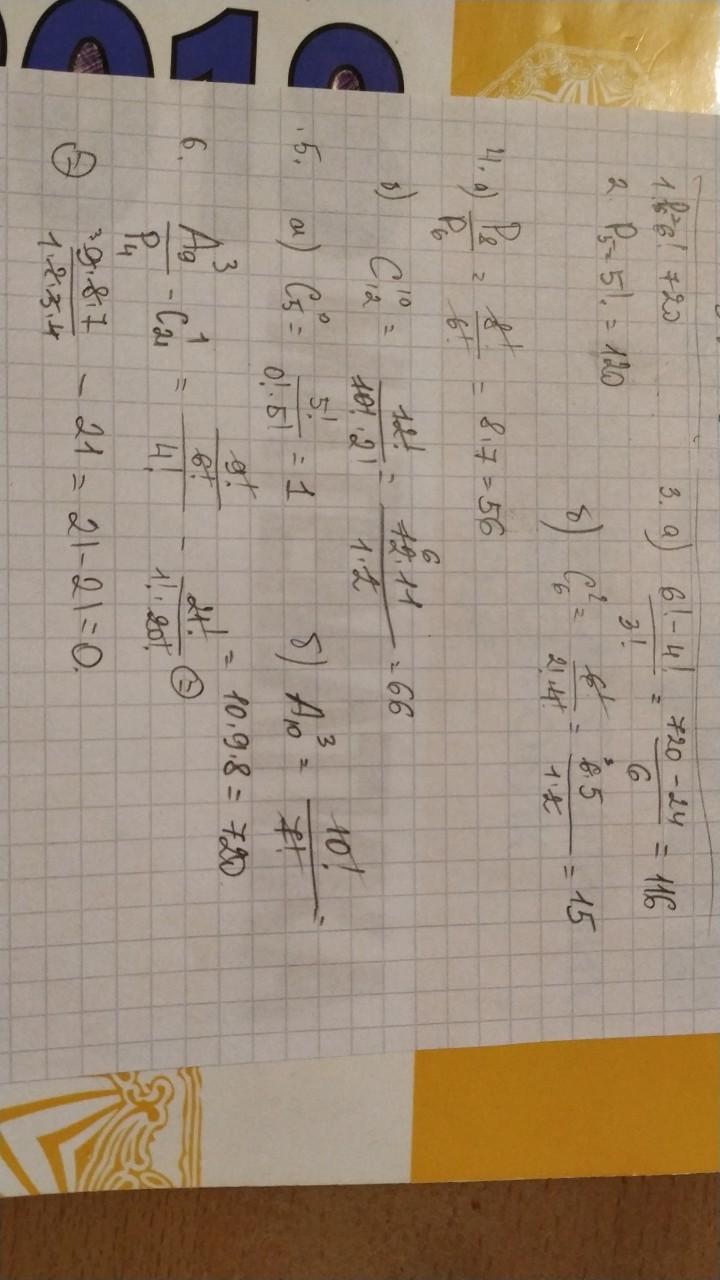 2019
1. P6 = 6! 720
2. P5 = 5! = 120
3. а) (6! - 4!)/3! = (720 - 24)/6 = 116
б) C₆² = 6!/(2!·4!) = (6·5)/(1·2) = 15
4. а) P8/P6 = 8!/6! = 8·7 = 56
б) C₁₂¹⁰ = 12!/(10!·2!) = (12·11)/(1·2) = 66
5. а) C₅⁰ = 5!/(0!·5!) = 1
б) A₁₀³ = 10!/7! =
= 10·9·8 = 720
6. A₉³/P₄ - C₂₁¹ = (9!/6!)/4! - 21!/(1!·20!) =
= (9·8·7)/(1·2·3·4) - 21 = 21 - 21 = 0.